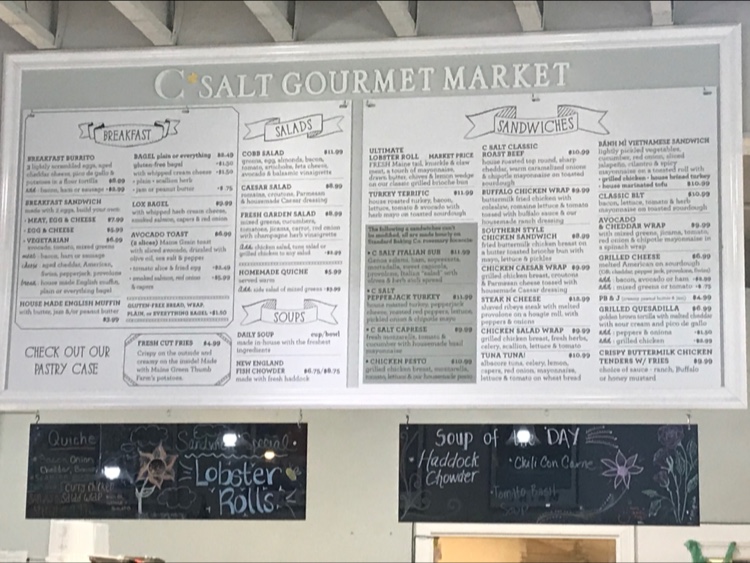 C SALT GOURMET MARKET
BREAKFAST
BREAKFAST BURRITO
2 lightly scrambled eggs, aged
cheddar cheese, pico de gallo &
potatoes in a flour tortilla $8.99
Add: bacon, ham or sausage
BREAKFAST SANDWICH
made with 2 eggs, build your own
- MEAT, EGG & CHEESE $7.99
- EGG & CHEESE
- VEGETARIAN
avocado, tomato, mixed greens
meat - bacon, ham or sausage
aged cheddar, American,
Swiss, pepperjack, provolone
house made English muffin,
plain or everything bagel
HOUSE MADE ENGLISH MUFFIN
with butter, jam &/or peanut butter
$3.99
CHECK OUT OUR
PASTRY CASE
BAGEL plain or everything
gluten free bagel
with whipped cream cheese
- plain - scallion herb
- jam or peanut butter
LOX BAGEL
with whipped herb cream cheese,
smoked salmon, capers & red onion
AVOCADO TOAST
(2 slices) Maine Grain toast
with sliced avocado, drizzled with
olive oil, sea salt & pepper
- tomato slice & fried egg
- smoked salmon, red onion
& capers
GLUTEN-FREE BREAD, WRAP,
PLAIN, or EVERYTHING BAGEL
FRESH CUT FRIES $4.99
Crispy on the outside and
creamy on the inside! Made
with Maine Green Thumb
Farm's potatoes.
SALADS
COBB SALAD $11.99
greens, egg, almonds, bacon,
tomato, artichoke, feta cheese,
avocado & balsamic vinaigrette
CAESAR SALAD $8.99
romaine, croutons, Parmesan
& housemade Caesar dressing
FRESH GARDEN SALAD
mixed greens, cucumbers,
tomatoes, carrot, red onion
with champagne herb vinaigrette
Add: chicken salad, tuna salad or
grilled chicken to any salad
HOMEMADE QUICHE $5.99
served warm
Add: side salad of mixed greens
SOUPS
DAILY SOUP cup/bowl
made in-house with the freshest
ingredients
NEW ENGLAND
FISH CHOWDER $6.75/$8.75
made with fresh haddock
SANDWICHES
ULTIMATE
LOBSTER ROLL MARKET PRICE
FRESH Maine tail, knuckle & claw
meat, a touch of mayonnaise,
drawn butter, chives & lemon wedge
on our classic grilled brioche bun
TURKEY TERRIFIC $11.99
house roasted turkey, bacon,
lettuce, tomato & avocado with
herb mayo on toasted sourdough
The following 4 sandwiches can't
be modified, all are made hourly on
Standard Baking Co. rosemary focaccia
• C SALT ITALIAN SUB $11.99
• C SALT
PEPPERJACK TURKEY $11.99
house roasted turkey, pepperjack
cheese, roasted red peppers, lettuce,
pickled onions & chipotle mayo
• C SALT CAPRESE
fresh mozzarella, tomato &
cucumber with housemade basil
mayonnaise
• CHICKEN PESTO $10.99
grilled chicken breast, mozzarella,
tomato, lettuce & our housemade pesto
C SALT CLASSIC
ROAST BEEF $10.99
house roasted top round, sharp
cheddar, warm caramelized onions
& chipotle mayonnaise on toasted
sourdough
BUFFALO CHICKEN WRAP $9.99
buttermilk fried chicken with
coleslaw, romaine lettuce & tomato
tossed with buffalo sauce & our
housemade ranch dressing
SOUTHERN STYLE
CHICKEN SANDWICH $8.99
fried buttermilk chicken breast on
a butter toasted brioche bun with
mayo, lettuce & pickles
CHICKEN CAESAR WRAP $9.99
grilled chicken breast, croutons
& Parmesan cheese tossed with
housemade Caesar dressing
STEAK N CHEESE $10.99
shaved ribeye steak with melted
provolone on a hoagie roll, with
peppers & onions
CHICKEN SALAD WRAP $9.99
grilled chicken breast, fresh herbs,
celery, scallion, lettuce & tomato
TUNA TUNA! $10.99
albacore tuna, celery, lemon,
capers, red onion, mayonnaise,
lettuce & tomato on wheat bread
BÁNH MÌ VIETNAMESE SANDWICH
lightly pickled vegetables,
cucumber, red onion, sliced
jalapeño, cilantro & spicy
mayonnaise on a toasted roll with
- grilled chicken - house brined turkey
- house marinated tofu $10.99
CLASSIC BLT $10.99
bacon, lettuce, tomato & herb
mayonnaise on toasted sourdough
AVOCADO
& CHEDDAR WRAP $9.99
with mixed greens, tomato,
red onion & chipotle mayonnaise in
a spinach wrap
GRILLED CHEESE $6.99
melted American on sourdough
Add: bacon, avocado or ham
Add: mixed greens or tomato
PB & J $4.99
GRILLED QUESADILLA $6.99
golden brown tortilla with melted cheddar
with sour cream and pico de gallo
Add: peppers & onions
Add: grilled chicken
CRISPY BUTTERMILK CHICKEN
TENDERS W/ FRIES $9.99
choice of sauce - ranch, Buffalo
or honey mustard
Quiche
Sandwich Special
Lobster
Rolls
Soup of DAY
• Haddock
Chowder
• Chili Con Carne
• Tomato Basil